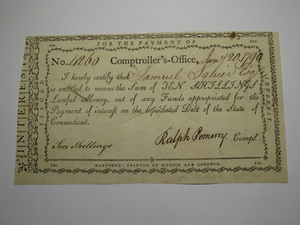 FOR THE PAYMENT OF
INTEREST
No. 11260 Comptroller's-Office, Jany 20, 1790
I hereby certify that Samuel Squier Esqr
is entitled to receive the Sum of TEN SHILLINGS
Lawful Money, out of any Funds appropriated for the
Payment of interest on the liquidated Debt of the State of
Connecticut.
Ten Shillings Ralph Pomeroy Compt.
HARTFORD: PRINTED BY HUDSON AND GOODWIN.